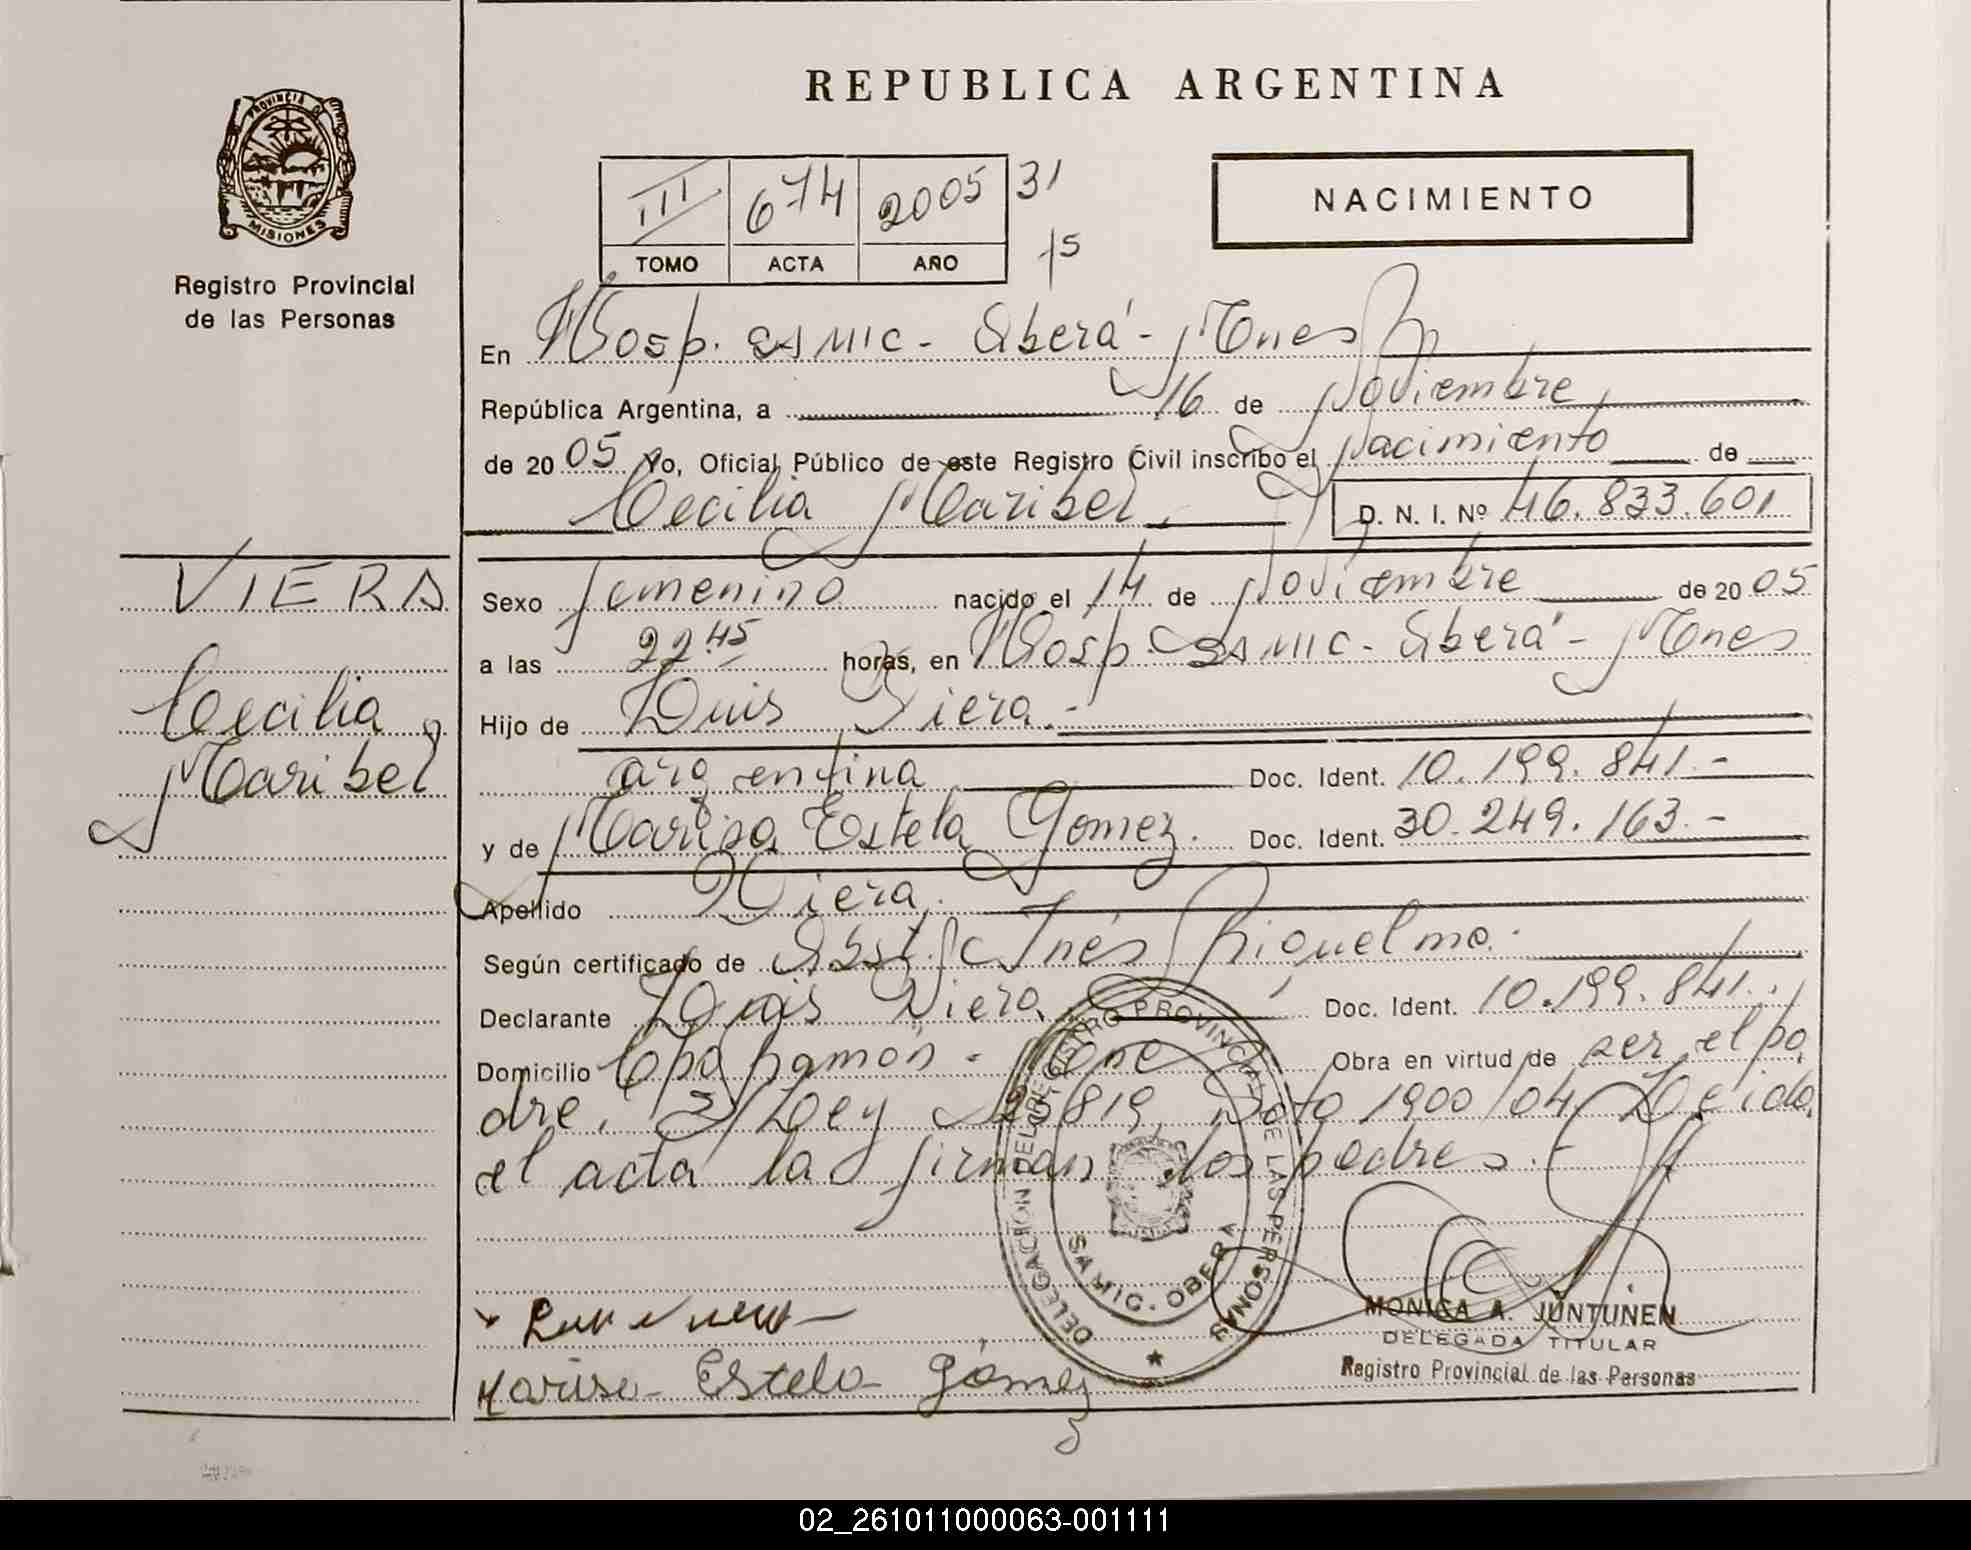 REPUBLICA ARGENTINA
PROVINCIA DE
MISIONES
Registro Provincial
de las Personas
III 674 2005 31
TOMO ACTA AÑO 15
NACIMIENTO
En Hosp. SAMIC - Oberá - Mnes
República Argentina, a 16 de Noviembre
de 20 05 Yo, Oficial Público de este Registro Civil inscribo el Nacimiento de
Cecilia Maribel. D. N. I. Nº 46.833.601
VIERA
Cecilia
Maribel
Sexo femenino nacido el 14 de Noviembre de 20 05
a las 22 45 horas, en Hosp SAMIC - Oberá - Mnes
Hijo de Luis Viera.-
argentina Doc. Ident. 10.199.841.-
y de Marisa Estela Gomez. Doc. Ident. 30.249.163.-
Apellido Viera.
Según certificado de Obst. Inés Riquelme.
Declarante Luis Viera Doc. Ident. 10.199.841.
Domicilio Cpo Ramón - Mne Obra en virtud de ser el pa
dre. S/Ley 25819, Dcto 1900/04 Leida
el acta la firman los padres.
DELEGACION DEL REGISTRO PROVINCIAL DE LAS PERSONAS
SAMIC. OBERA
MONICA A. JUNTUNEN
DELEGADA TITULAR
Registro Provincial de las Personas
Marisa Estela Gómez
02_261011000063-001111